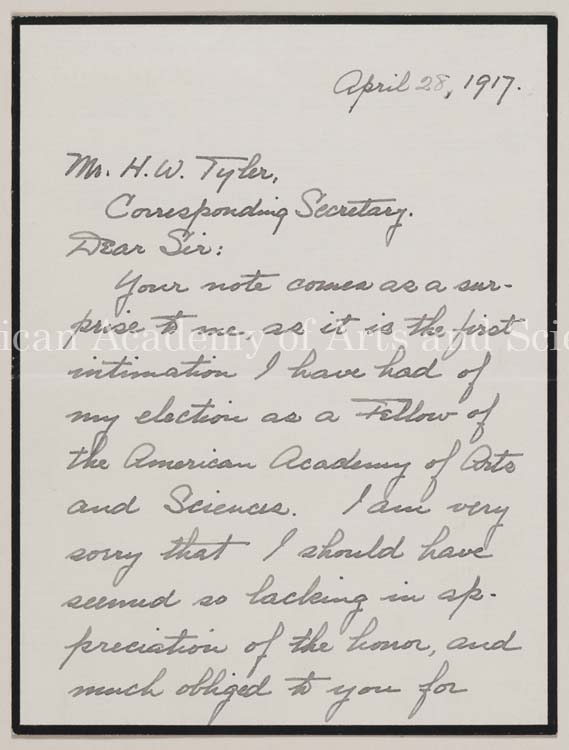 April 28, 1917.
Mr. H. W. Tyler,
Corresponding Secretary.
Dear Sir:
Your note comes as a sur-
prise to me, as it is the first
ican Academy of Arts and Scie
intimation I have had of
my election as a Fellow of
the American Academy of Arts
and Sciences. I am very
sorry that I should have
seemed so lacking in ap-
preciation of the honor, and
much obliged to you for